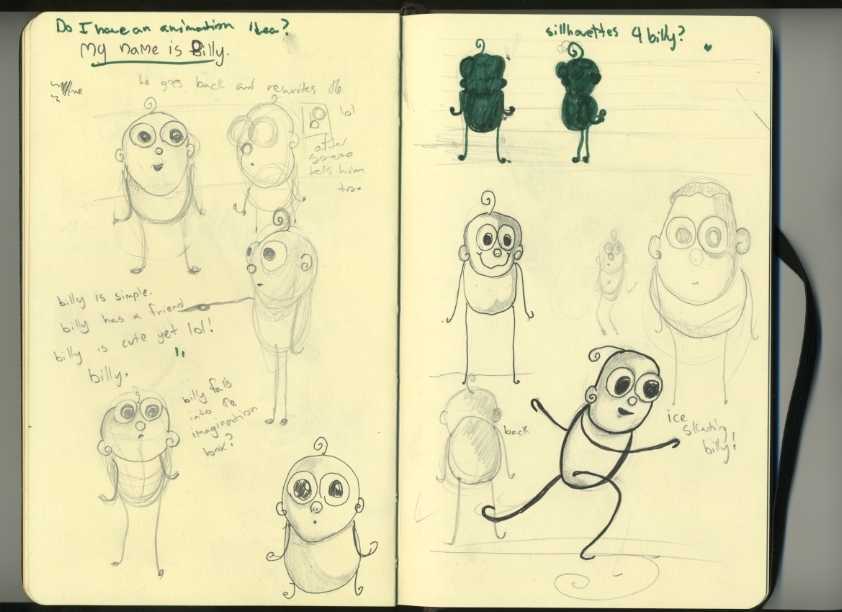 Do I have an animation idea?
My name is Billy.
he goes back and rewrites the
lol
after
someone
tells him
billy is simple.
billy has a friend
billy is cute yet lol!
billy.
billy falls
into the
imagination
book?
sillhouettes 4 billy?
back
ice
skating
billy!